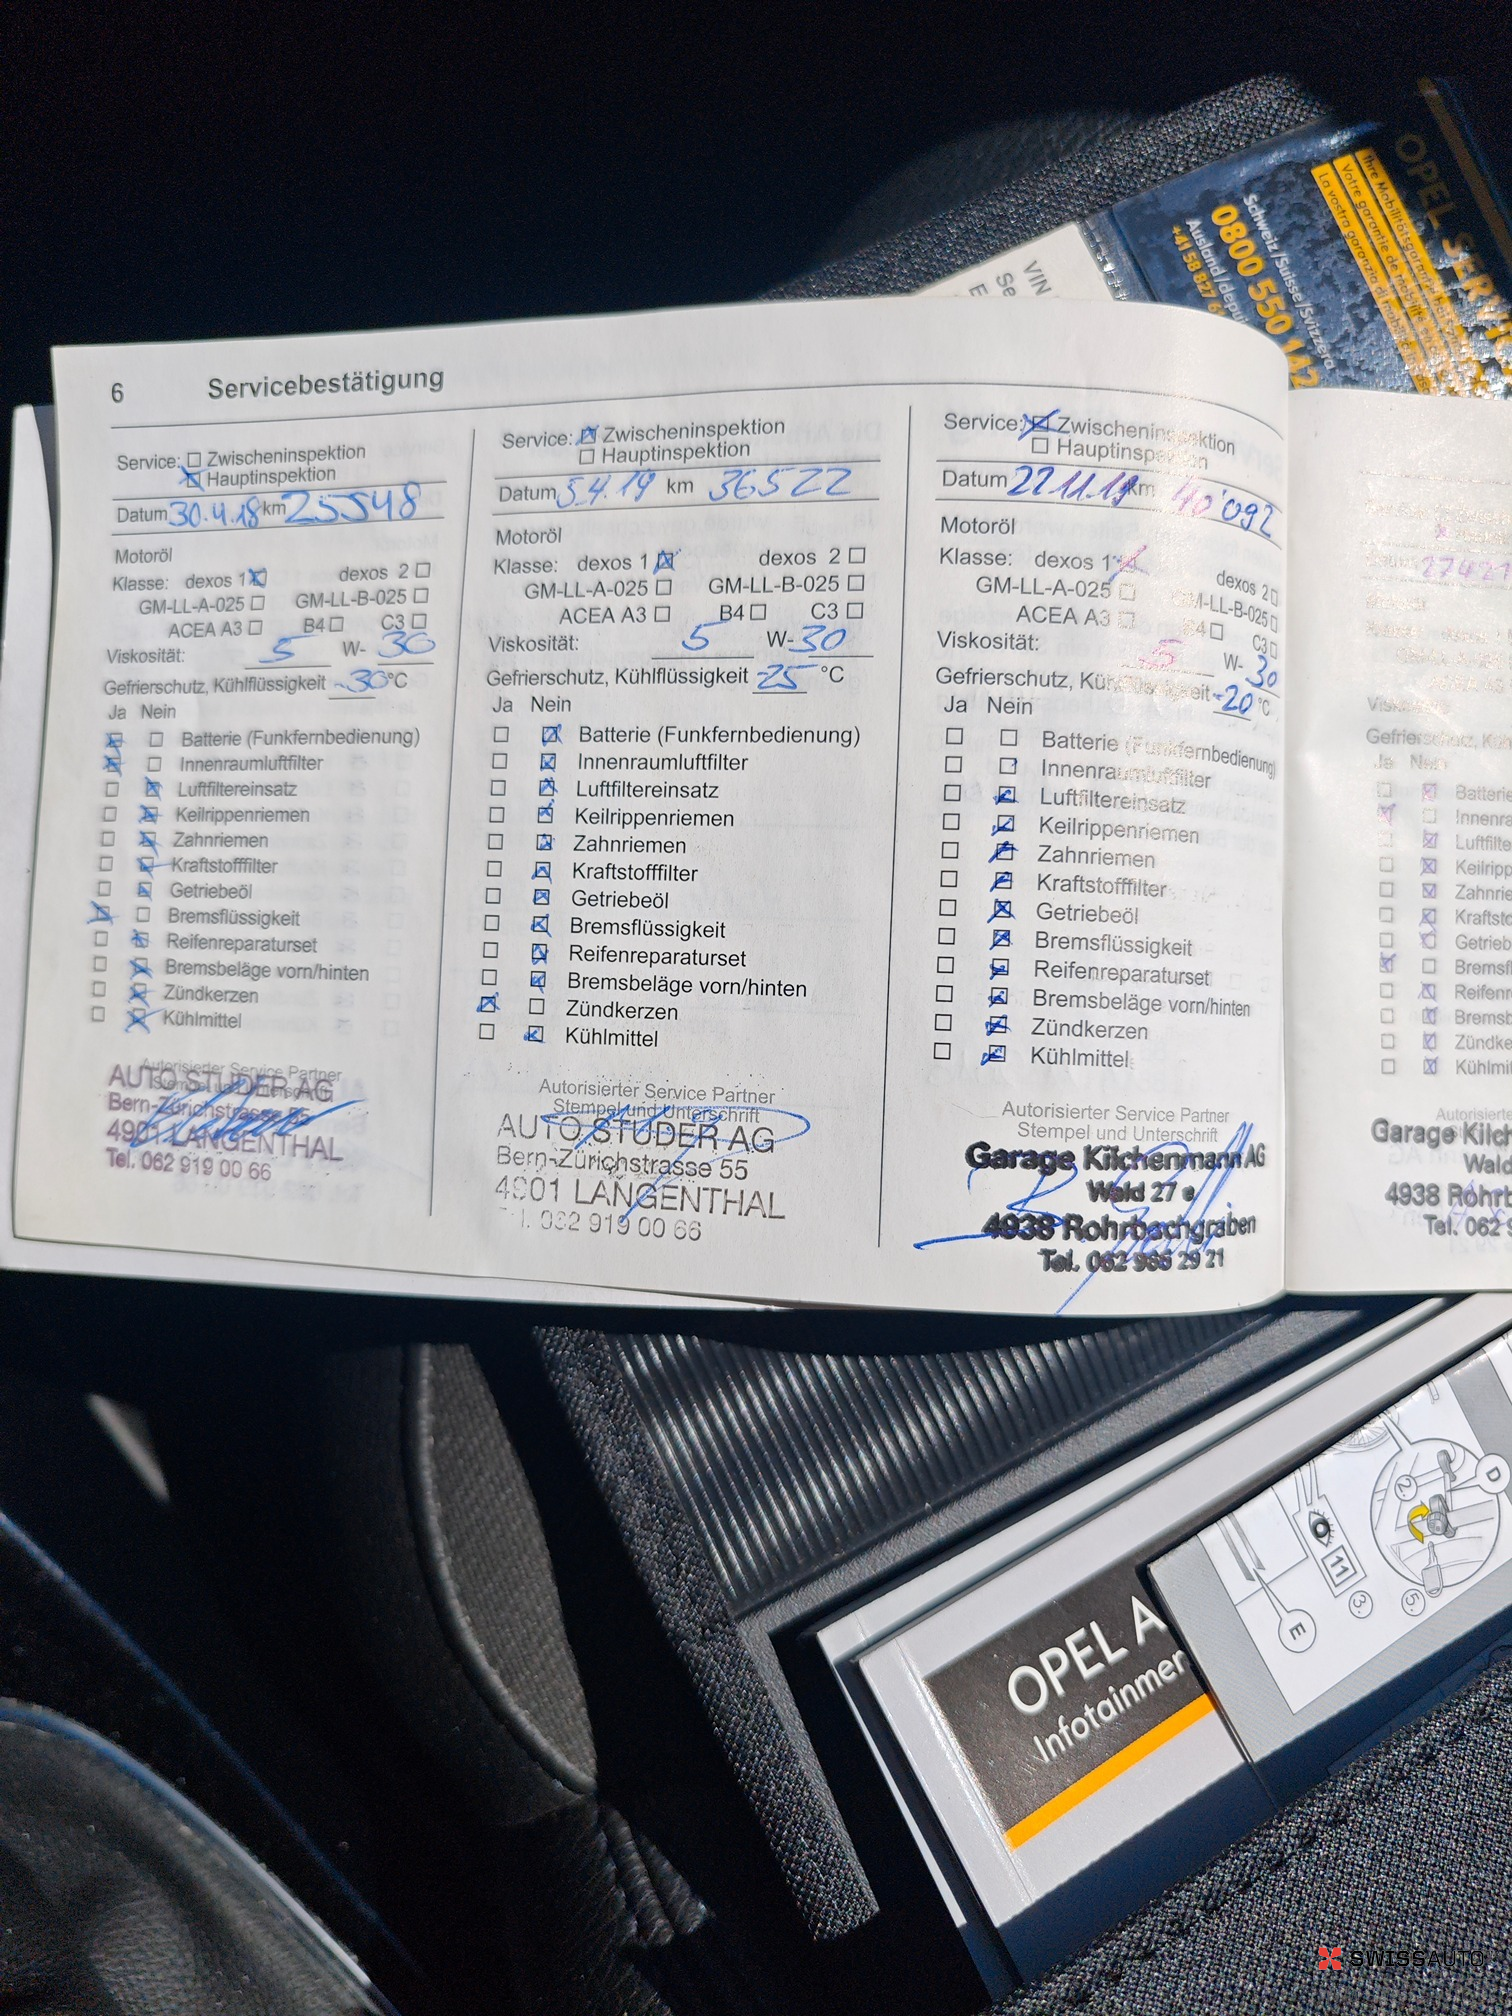 OPEL SERVICE
Ihre Mobilitätsgarantie
Votre garantie de
La vostra garanzia di
Schweiz/Suisse/Svizzera
0800 550 142
Ausland/depuis
+41 58 827 6
VIN
Se
E
6 Servicebestätigung
Service: Zwischeninspektion
Hauptinspektion
Datum 30.4.18 km 25548
Motoröl
Klasse: dexos 1 dexos 2
GM-LL-A-025 GM-LL-B-025
ACEA A3 B4 C3
Viskosität: 5 W- 30
Gefrierschutz, Kühlflüssigkeit -30 °C
Ja Nein
Batterie (Funkfernbedienung)
Innenraumluftfilter
Luftfiltereinsatz
Keilrippenriemen
Zahnriemen
Kraftstofffilter
Getriebeöl
Bremsflüssigkeit
Reifenreparaturset
Bremsbeläge vorn/hinten
Zündkerzen
Kühlmittel
Autorisierter Service Partner
AUTO STUDER AG
Bern-Zürichstrasse 55
4901 LANGENTHAL
Tel. 062 919 00 66
Service: Zwischeninspektion
Hauptinspektion
Datum 5.4.19 km 36522
Motoröl
Klasse: dexos 1 dexos 2
GM-LL-A-025 GM-LL-B-025
ACEA A3 B4 C3
Viskosität: 5 W- 30
Gefrierschutz, Kühlflüssigkeit -25 °C
Ja Nein
Batterie (Funkfernbedienung)
Innenraumluftfilter
Luftfiltereinsatz
Keilrippenriemen
Zahnriemen
Kraftstofffilter
Getriebeöl
Bremsflüssigkeit
Reifenreparaturset
Bremsbeläge vorn/hinten
Zündkerzen
Kühlmittel
Autorisierter Service Partner
Stempel und Unterschrift
AUTO STUDER AG
Bern-Zürichstrasse 55
4901 LANGENTHAL
Tel. 062 919 00 66
Service: Zwischeninspektion
Hauptinspektion
Datum 22.11.19 km 40'092
Motoröl
Klasse: dexos 1 dexos 2
GM-LL-A-025 GM-LL-B-025
ACEA A3 B4 C3
Viskosität: 5 W- 30
Gefrierschutz, Kühlflüssigkeit -20 °C
Ja Nein
Batterie (Funkfernbedienung)
Innenraumluftfilter
Luftfiltereinsatz
Keilrippenriemen
Zahnriemen
Kraftstofffilter
Getriebeöl
Bremsflüssigkeit
Reifenreparaturset
Bremsbeläge vorn/hinten
Zündkerzen
Kühlmittel
Autorisierter Service Partner
Stempel und Unterschrift
Garage Kilchenmann AG
Wald 27 e
4938 Rohrbachgraben
Tel. 062 965 29 21
Ja Nein
Batterie
Innenra
Luftfilte
Keilripp
Zahnrie
Kraftsto
Getrieb
Bremsfl
Reifenre
Bremsb
Zündke
Kühlmit
Autorisierte
Garage Kilch
Wald
4938 Rohrb
Tel. 062 9
OPEL A
Infotainmen
E
11
3.
2.
5.
D
SWISSAUTO